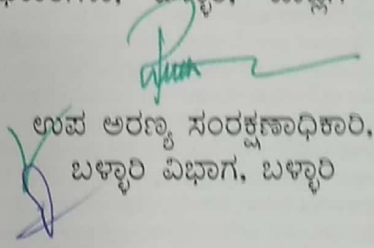 ಉಪ ಅರಣ್ಯ ಸಂರಕ್ಷಣಾಧಿಕಾರಿ,
ಬಳ್ಳಾರಿ ವಿಭಾಗ, ಬಳ್ಳಾರಿ